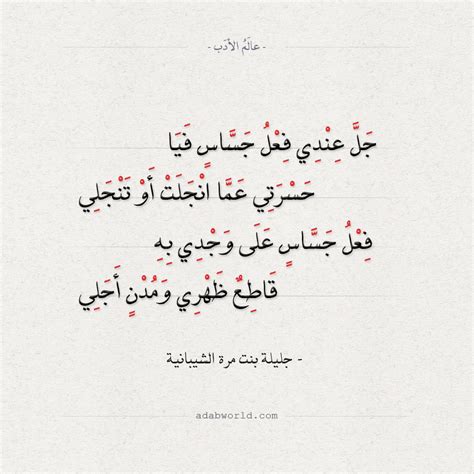 - عالَمُ الأدَب -
جَلَّ عِنْدِي فِعْلُ جَسَّاسٍ فَيَا
حَسْرَتِي عَمَّا انْجَلَتْ أَوْ تَنْجَلِي
فِعْلُ جَسَّاسٍ عَلَى وَجْدِي بِهِ
قَاطِعٌ ظَهْرِي وَمُدْنٍ أَجَلِي
- جليلة بنت مرة الشيبانية
adabworld.com